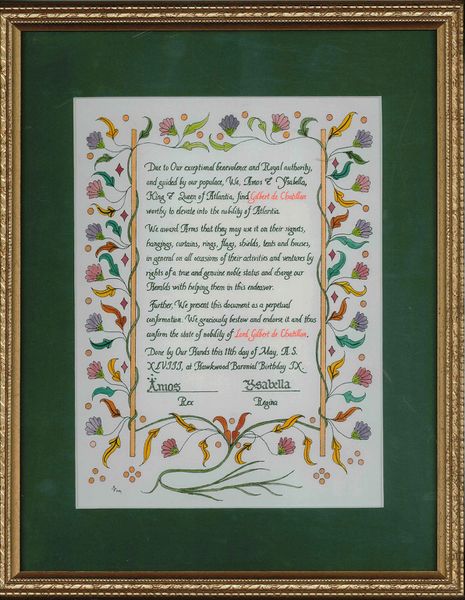 Due to Our exceptional benevolence and Royal authority,
and guided by our populace, We, Amos & Ysabella,
King & Queen of Atlantia, find Gilbert de Chatillon
worthy to elevate into the nobility of Atlantia.
We award Arms that they may use it on their signets,
hangings, curtains, rings, flags, shields, tents and houses,
in general on all occasions of their activities and ventures by
rights of a true and genuine noble status and charge our
Heralds with helping them in this endeavor.
Further, We present this document as a perpetual
confirmation. We graciously bestow and endorse it and thus
confirm the state of nobility of Lord Gilbert de Chatillon.
Done by Our Hands this 11th day of May, A.S.
XLVIII, at Hawkwood Baronial Birthday IX.
Ämos Ysabella
Rex Regina